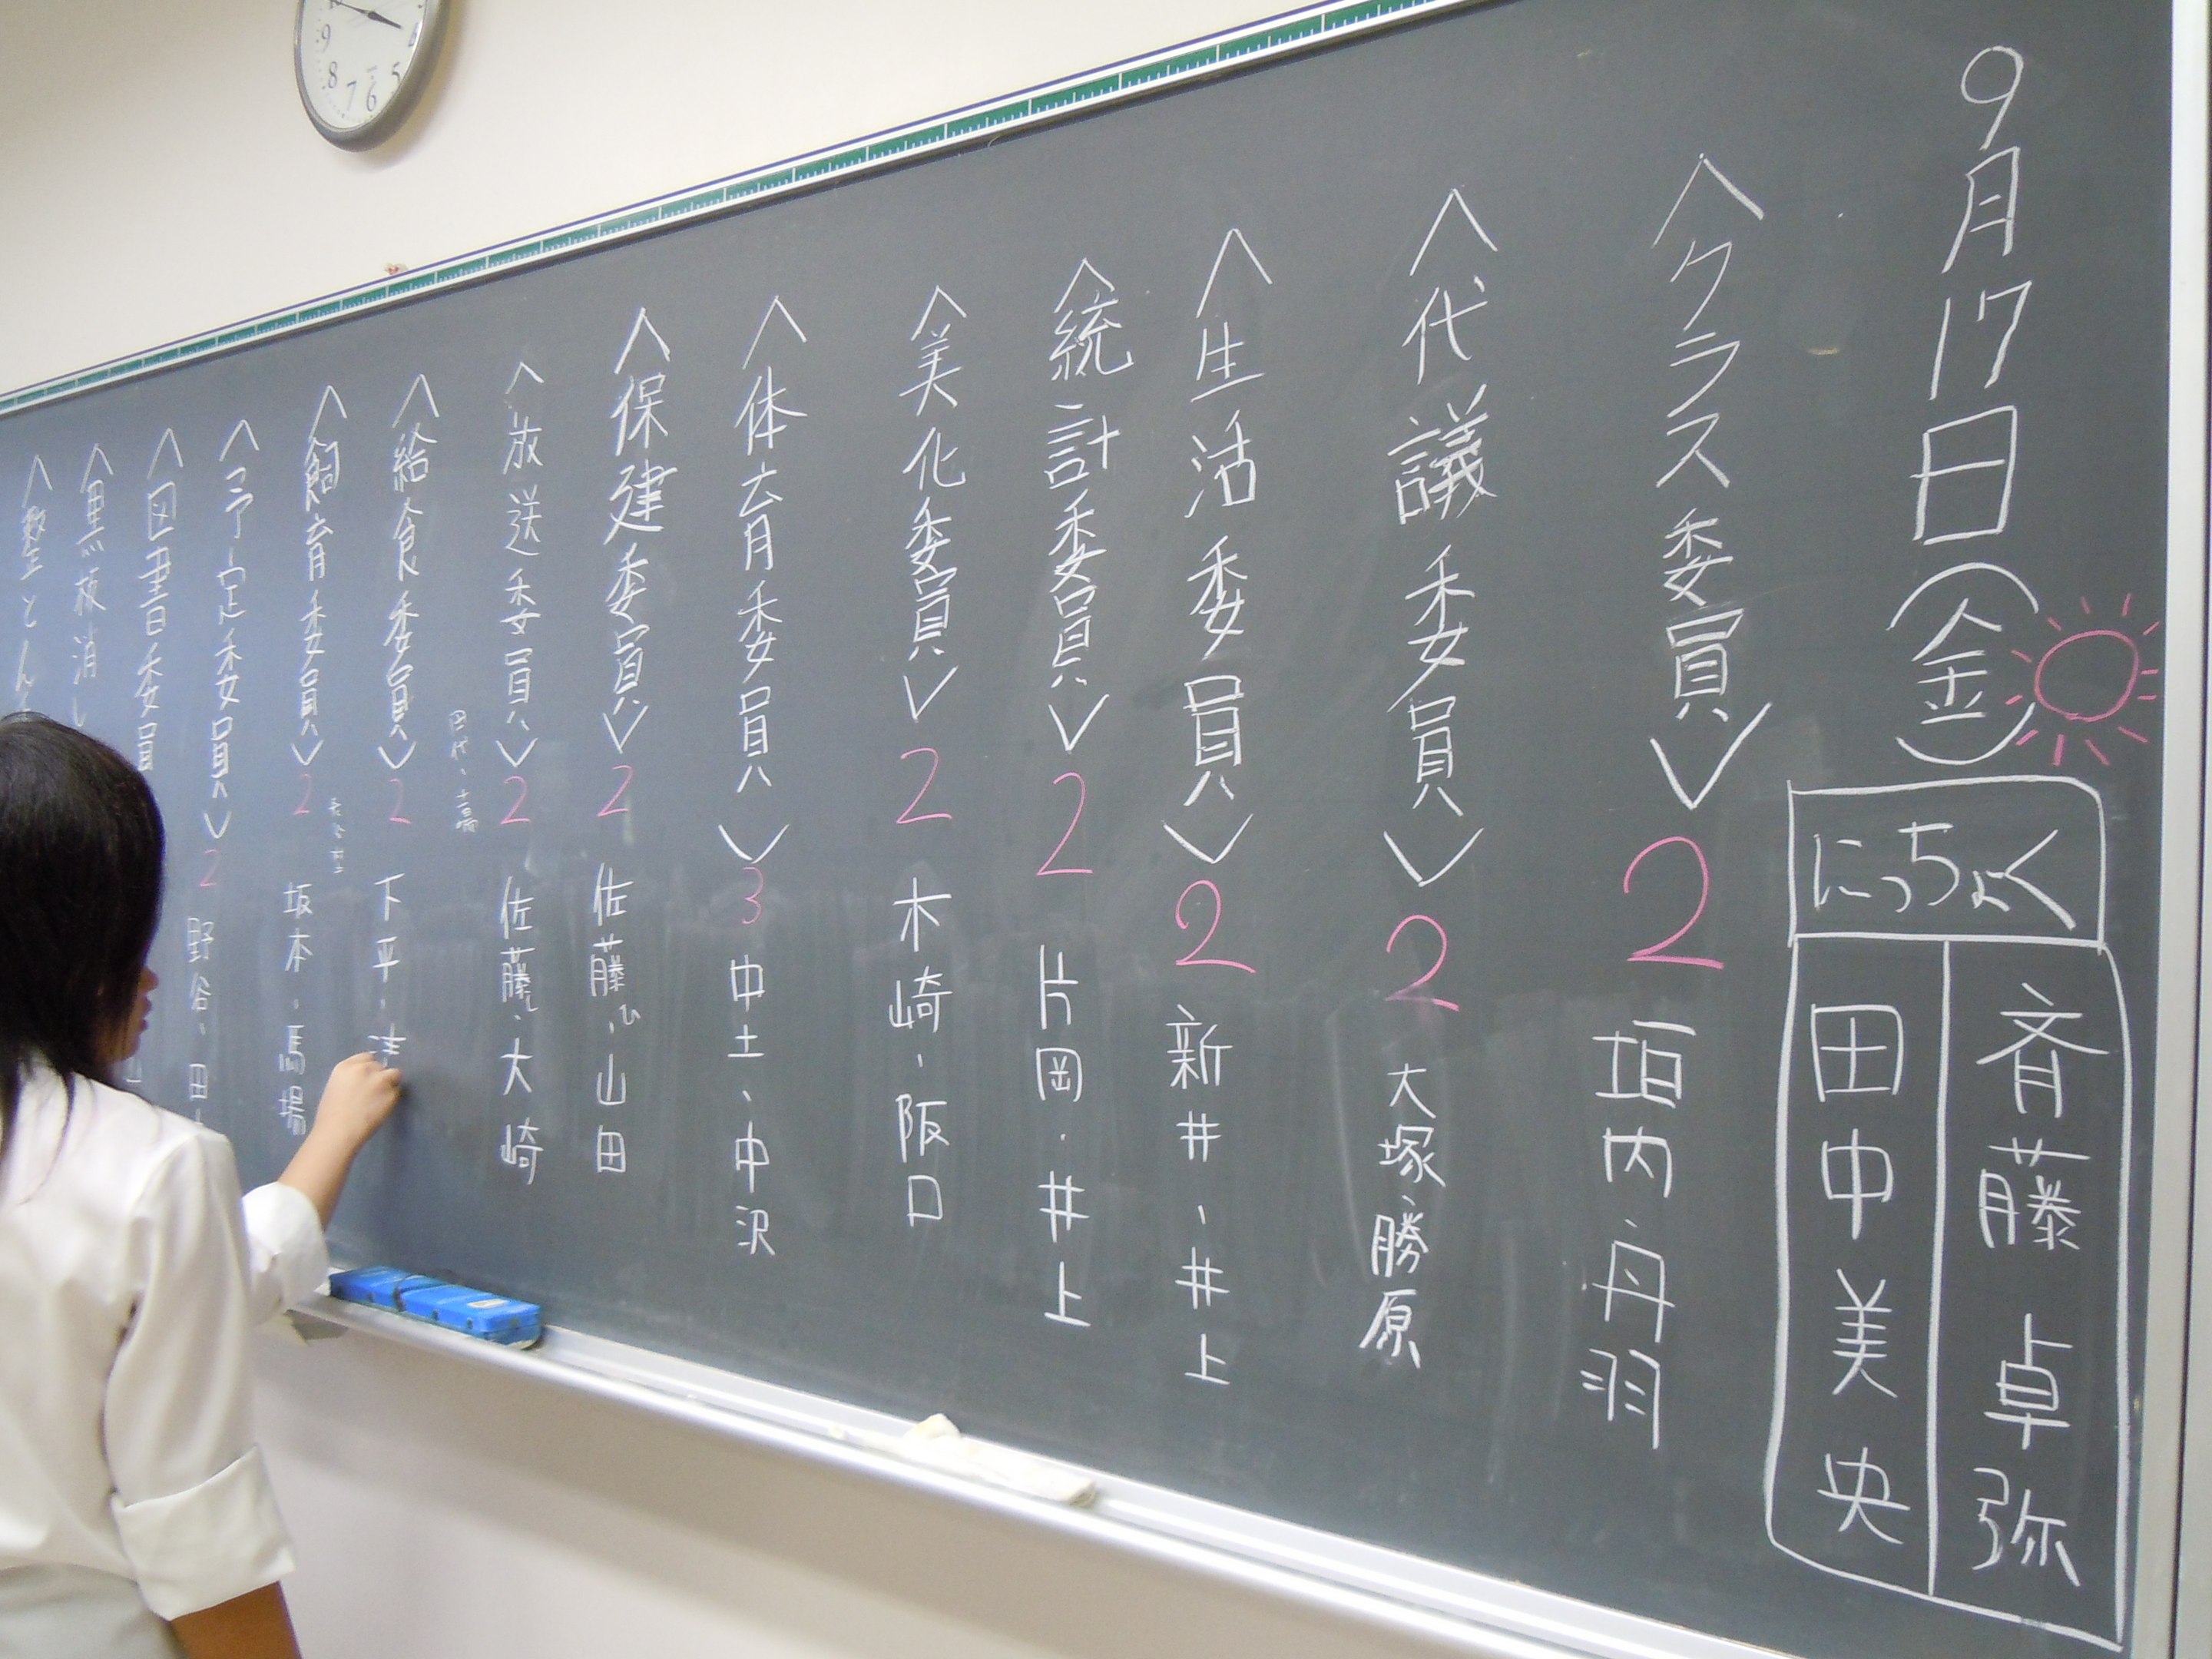 9月17日(金)
にっちょく
斉藤卓弥
田中美央
〈クラス委員〉2 垣内、丹羽
〈代議委員〉2 大塚、勝原
〈生活委員〉2 新井、井上
〈統計委員〉2 片岡・井上
〈美化委員〉2 木崎、阪口
〈体育委員〉3 中土、中沢
〈保建委員〉2 佐藤ひ、山田
〈放送委員〉2 佐藤、大崎
〈給食委員〉2 下平・
〈飼育委員〉2 坂本・馬場
〈予定委員〉2 野谷、田
〈図書委員
〈黒板消し
〈整とん
9
8
7
6
5
4